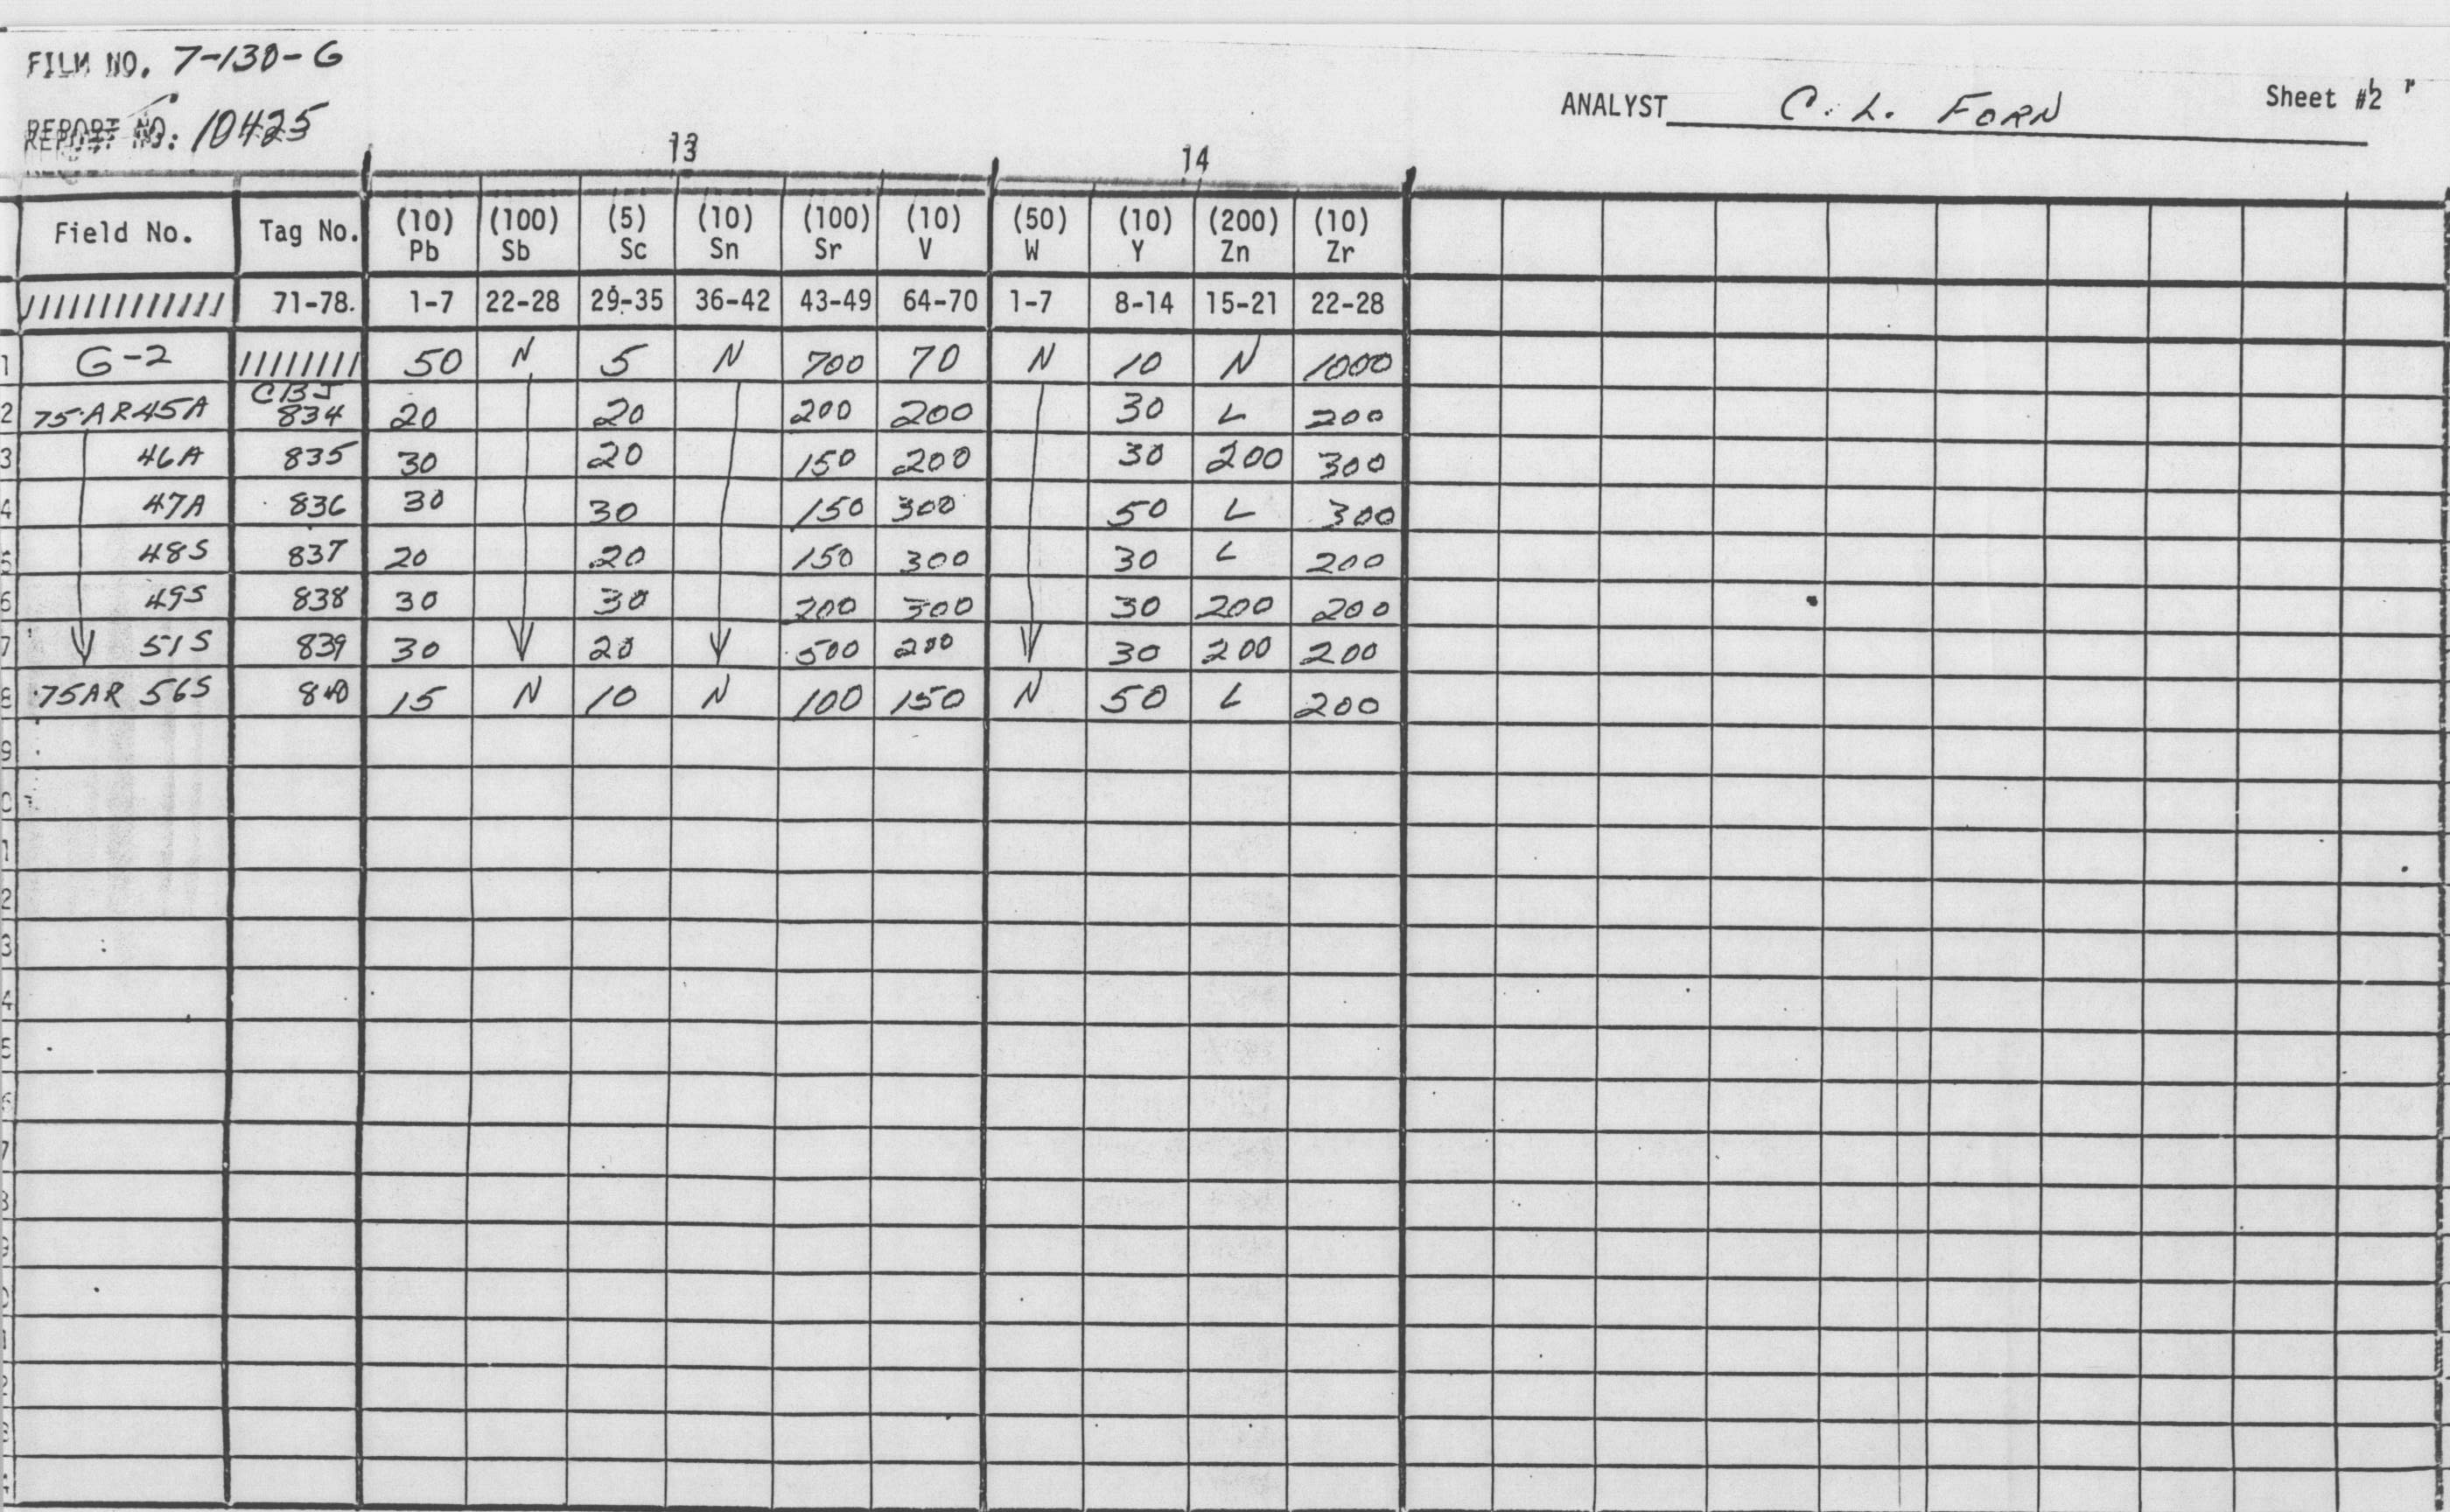 FILM NO. 7-130-G
REPORT NO: 10425
ANALYST C. L. FORN
Sheet #2
13 14
Field No. Tag No. (10) Pb (100) Sb (5) Sc (10) Sn (100) Sr (10) V (50) W (10) Y (200) Zn (10) Zr
///////////// 71-78. 1-7 22-28 29-35 36-42 43-49 64-70 1-7 8-14 15-21 22-28
1 G-2 //////// 50 N 5 N 700 70 N 10 N 1000
2 75-AR45A CBJ 834 20 20 200 200 30 L 200
3 46A 835 30 20 150 200 30 200 300
4 47A 836 30 30 150 300 50 L 300
5 48S 837 20 20 150 300 30 L 200
6 49S 838 30 30 200 300 30 200 200
7 51S 839 30 20 500 200 30 200 200
8 75AR 56S 840 15 N 10 N 100 150 N 50 L 200
9
0
1
2
3
4
5
7
8